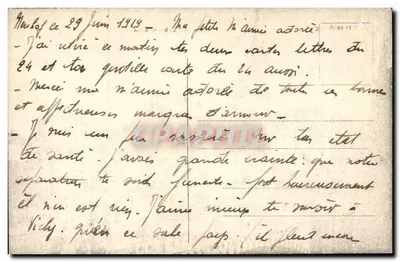 ce 29 Juin 1919 - Ma petite m'amie adorée
- J'ai retiré ce matin tes deux cartes lettres du
24 et ton gentille carte du 24 aussi.
- Merci ma m'amie adorée de toute ces bonnes
et affectueuses marques d'amour -
- Je suis un peu rassuré sur ton état
de santé j'avais grande crainte que notre
séparation te soit funeste - fort heureusement
il n'en est rien. J'aime mieux te savoir à
Vichy. qu'en ce sale pays. (il pleut encore